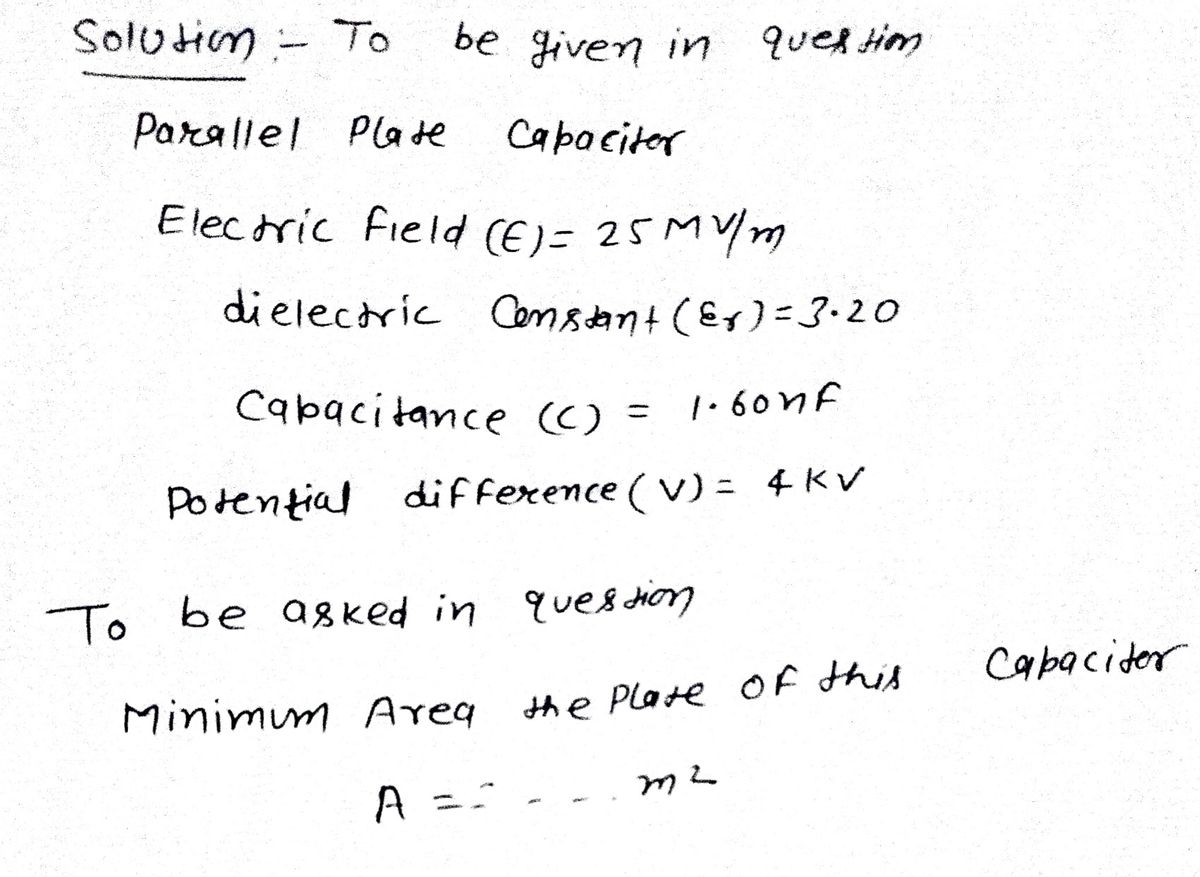 Solution :- To be given in question
Parallel Plate Capacitor
Electric field (E) = 25 MV/m
dielectric Constant (εr) = 3.20
Capacitance (C) = 1.60nF
Potential difference (V) = 4 KV
To be asked in question
Minimum Area the Plate of this Capacitor
A = - - - - m²